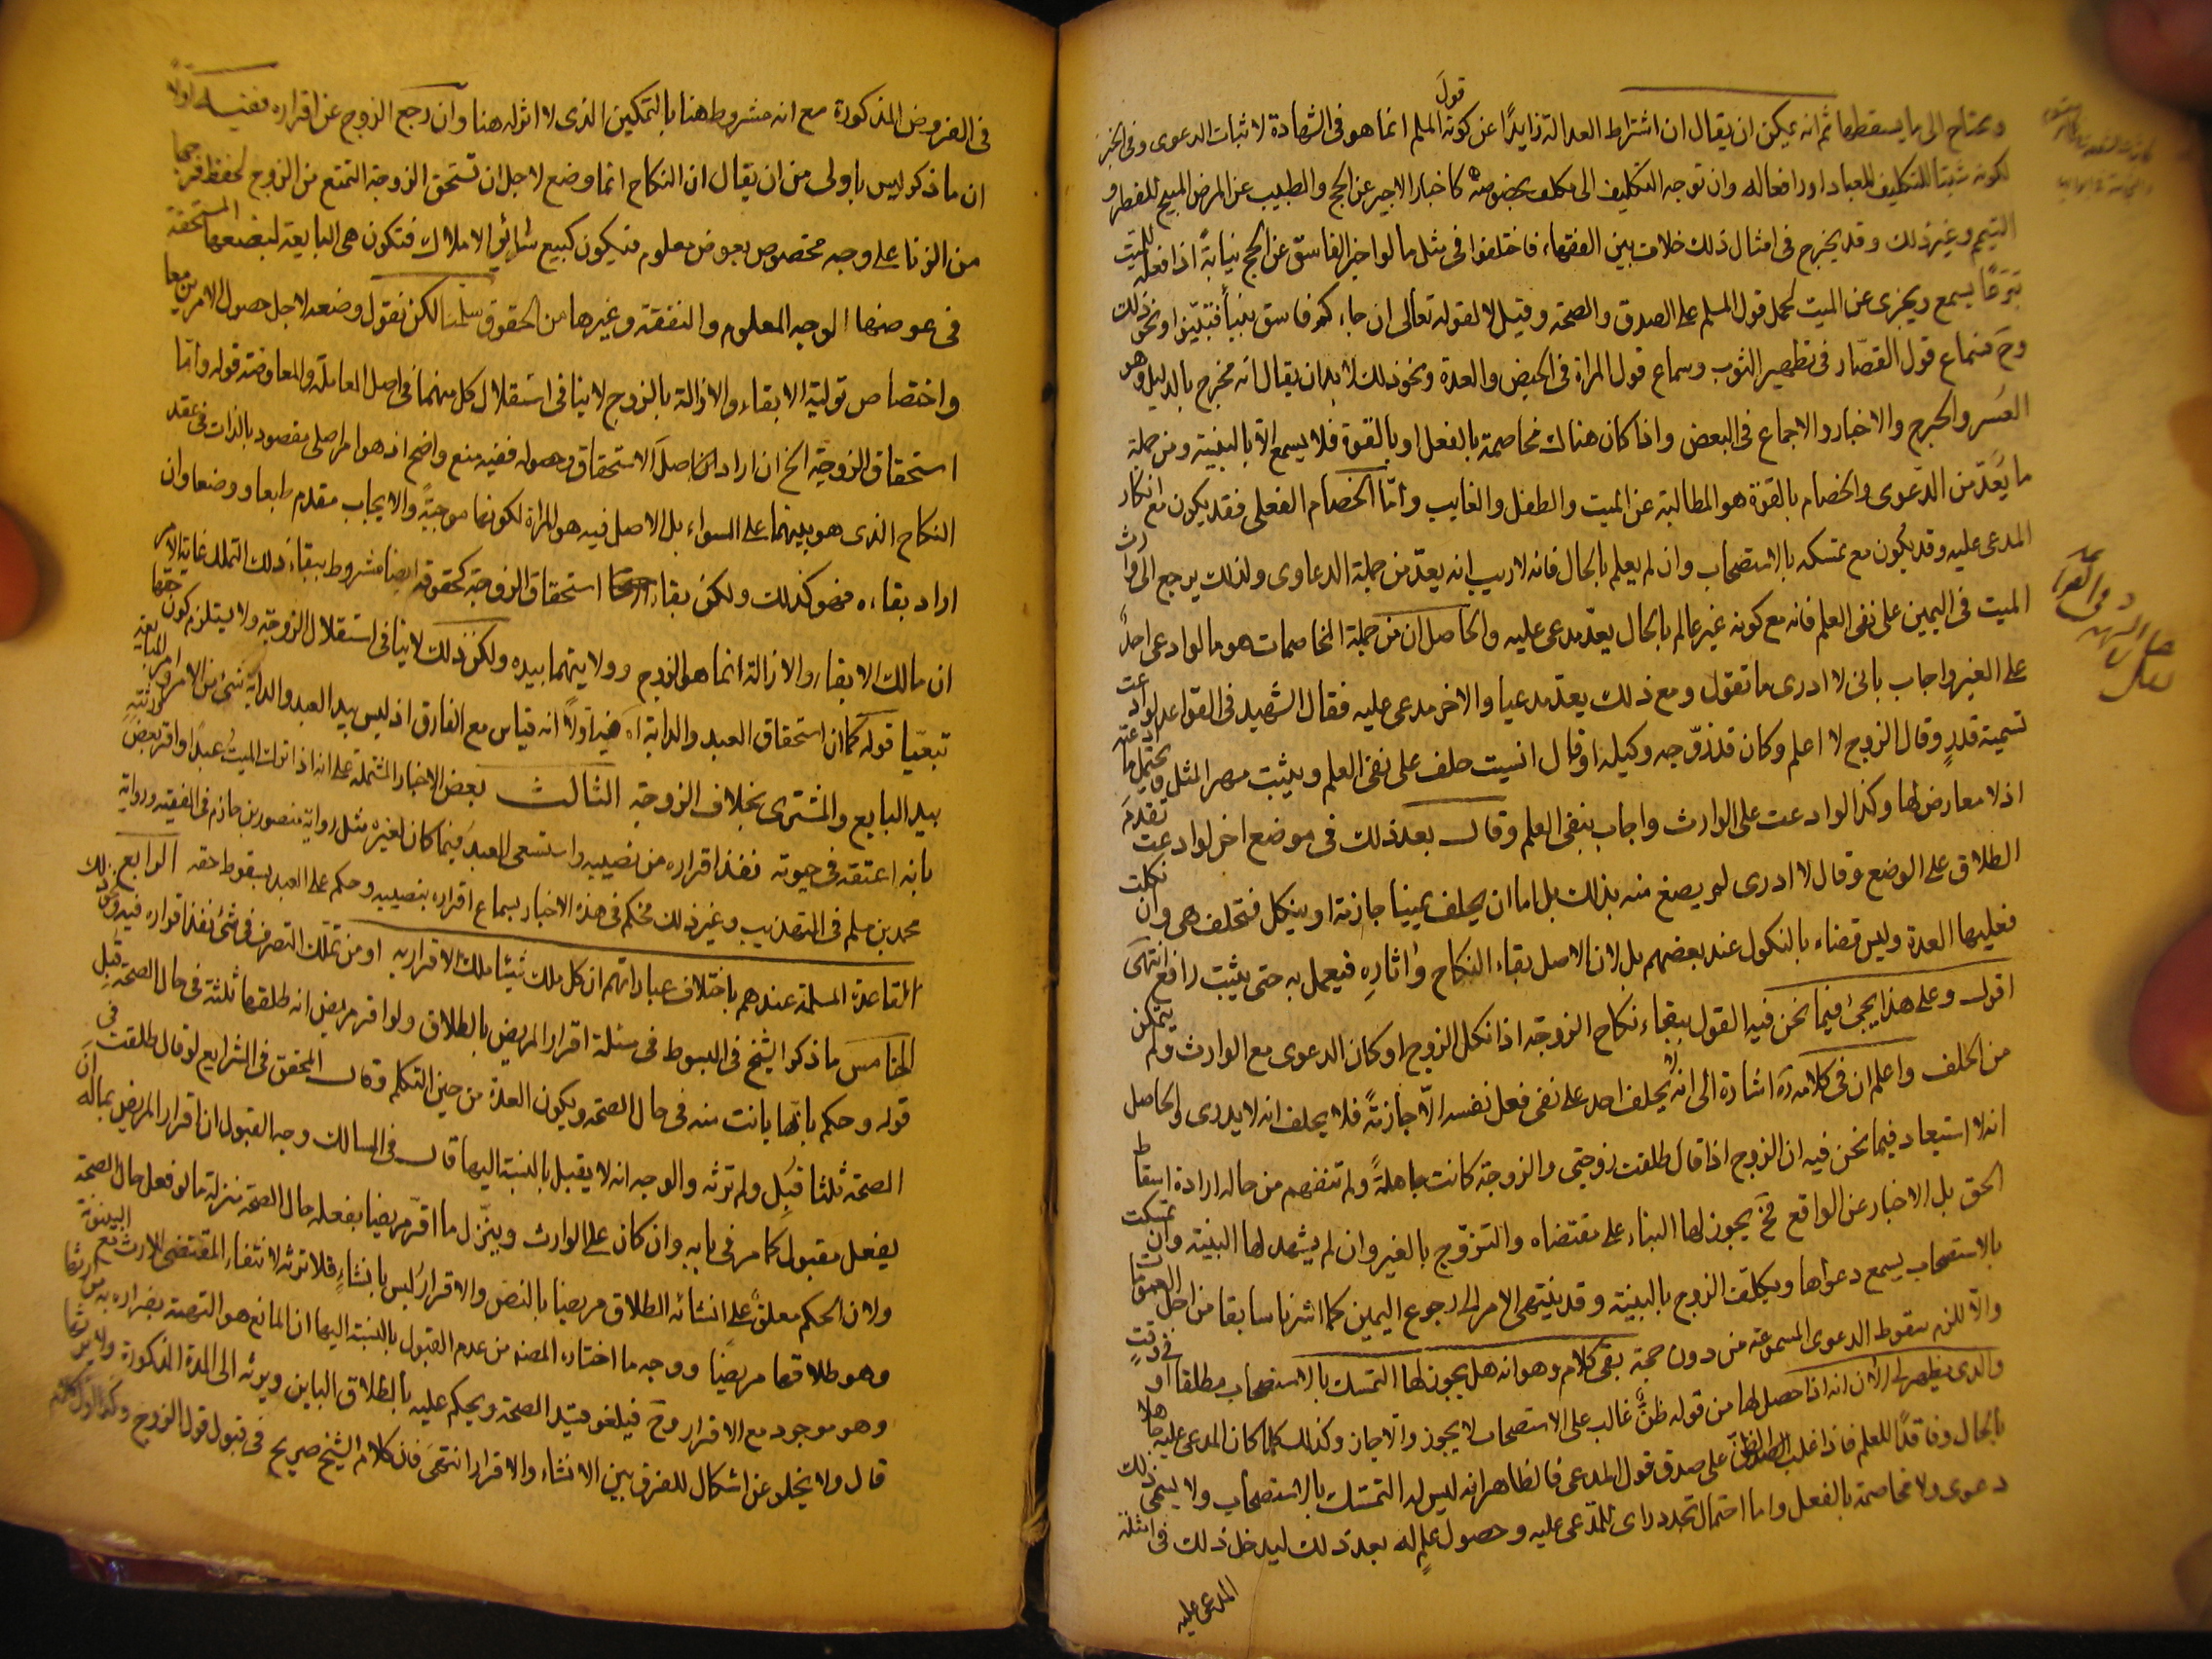 ويحتاج الى ما يسقطها ثم انه يمكن ان يقال ان اشتراط العدالة زايدًا عن كونه قول المسلم انما هو فى الشهادة لاثبات الدعوى وفى الخبر
لكونه مثبتا للتكليف للعباد او رافعا له وان توجه التكليف الى مكلف بخصوصه كاخبار الاجير عن الحج والطبيب عن المرض المبيح للفطر و
التيمم وغير ذلك وقد يخرج فى امثال ذلك خلاف بين الفقهاء فاختلفوا فى مثل ما لو اخبر الفاسق عن الحج نيابةً اذا فعله للميت
تبرعًا يسمع ويجزى عن الميت لحمل قول المسلم على الصدق والصحة وقيل لا لقوله تعالى ان جاءكم فاسق بنبأ فتبيّنوا ونحو ذلك
وح فسماع قول القصّار فى تطهير الثوب وسماع قول المراة فى الحيض والعدة ونحو ذلك لا بد ان يقال انه مخرج بالدليل وهو
العسر والحرج والاخبار والاجماع فى البعض واذا كان هناك مخاصمة بالفعل او بالقوة فلا يسمع الا بالبينة ومن جملة
ما يُعَدّ من الدّعوى والخصام بالقوة هو المطالبة عن الميت والطفل والغايب وامّا الخصام الفعلى فقد يكون مع انكار
المدعى عليه وقد يكون مع تمسكه بالاستصحاب وان لم يعلم بالحال فانه لا ريب انه يعدّ من جملة الدعاوى ولذلك يرجع الى وارث
الميت فى اليمين على نفى العلم فانه مع كونه غير عالم بالحال يعدّ مدعى عليه والحاصل ان من جملة المخاصمات هو ما لو ادعى احدٌ
على الغير واجاب بانى لا ادرى ما تقول ومع ذلك يعدّ مدعيا والاخر مدعى عليه فقال الشهيد فى القواعد لو ادعت
تسمية قدرٍ وقال الزوج لا اعلم وكان قد زوّجه وكيله او قال انسيت حلف على نفى العلم ويثبت مهر المثل ويحتمل ما ادعته
اذ لا معارض لها وكذا لو ادعت على الوارث واجاب بنفى العلم وقال بعد ذلك فى موضع اخر لو ادعت تقدم
الطلاق على الوضع وقال لا ادرى لم يصغ منه بذلك بل اما ان يحلف يمينا جازمة او ينكل فتحلف هى وان نكلت
فعليها العدة وليس قضاء بالنكول عند بعضهم بل لان الاصل بقاء النكاح واثاره فيعمل به حتى يثبت رافع انتهى
اقول وعلى هذا يجئ فيما نحن فيه القول ببقاء نكاح الزوجة اذا نكل الزوج او كان الدعوى مع الوارث ولم يتمكن
من الحلف واعلم ان فى كلامه ره اشارة الى انه لا يحلف احد على نفى فعل نفسه الّا جازمةً فلا يحلف انه لا يدرى والحاصل
انه لا استبعاد فيما نحن فيه ان الزوج اذا قال طلقت زوجتى والزوجة كانت جاهلةً ولم تتفهم من حاله ارادة اسقاط
الحق بل الاخبار عن الواقع فح يجوز لها البناء على مقتضاه والتزوّج بالغير وان لم يشهد لها البينة وان تمسكت
بالاستصحاب يسمع دعواها ويكلف الزوج بالبينة وقد ينتهى الامر الى رجوع اليمين كما اشرنا سابقا من احد
والّا للزم سقوط الدعوى المسموعة من دون حجة بقى كلام وهو انه هل يجوز لها التمسك بالاستصحاب مطلقا او فى وقت
والذى يظهر لى الان انه اذا حصل لها من قوله ظنٌّ غالب على الاستصحاب لا يجوز والّا جاز وكذلك كلما كان المدعى عليه جاهلا
بالحال وفاقدًا للعلم فاذا غلب الظن على صدق قول المدعى فالظاهر انه ليس له التمسّك بالاستصحاب ولا يسمى ذلك
دعوى ولا مخاصمة بالفعل واما احتمال تجدد راى للمدّعى عليه وحصول علم له بعد ذلك ليدخل ذلك فى امثلة
المدعى عليه
فى الفروض المذكورة مع انه مشروط هنا بالتمكين الذى لا اثر له هنا وان رجع الزوج عن اقراره ففيه اولا
ان ما ذكر ليس باولى من ان يقال ان النكاح انما وضع لاجل ان تستحق الزوجة التمتع من الزوج لحفظ فرجها
من الزنا على وجه مخصوص بعوض معلوم فيكون كبيع سائر الاملاك فتكون هى البايعة لبضعها المستحقة
فى عوضها الوجه المعلوم والنفقة وغيرها من الحقوق سلمنا لكن نقول وضعه لاجل حصول الامرين معا
واختصاص تولية الابقاء والازالة بالزوج لا ينافى استقلال كل منهما فى اصل المعاملة والمعاوضة قوله وامّا
استحقاق الزوجة الخ ان اراد اصل الاستحقاق وحصوله ففيه منع واضح اذ هو امر اصلى مقصود بالذات فى عقد
النكاح الذى هو بينهما على السواء بل الاصل فيه هو المراة لكونها موجبة والايجاب مقدم طبعا ووضعا وان
اراد بقاءه فهو كذلك ولكن بقاء استحقاق الزوجة كحقوقه ايضا مشروط ببقاء ذلك التملك غاية الامر
ان مالك الابقاء والازالة انما هو الزوج وولايتهما بيده ولكن ذلك لا ينافى استقلال الزوجة ولا يستلزم كون حقها
تبعيّا قوله كما ان استحقاق العبد والدابة اه فيه اولاً انه قياس مع الفارق اذ ليس بيد العبد والدابة شئ من الامر وامر المبايعة
بيد البايع والمشترى بخلاف الزوجة الثالث بعض الاخبار المشتملة على انه اذا ترك الميت عبدًا واقر بعض ورثته
بانه اعتقه فى حيوته نفذ اقراره من نصيبه واستسعى العبد فيما كان لغيره مثل رواية منصور بن حازم فى الفقيه ورواية
محمد بن مسلم فى التهذيب وغير ذلك فحكم فى هذه الاخبار بسماع اقراره بنصيبه وحكم على العبد بسقوط حقه الرابع
القاعدة المسلمة عندهم باختلاف عباراتهم ان كل ملك شيئا ملك الاقرار به او من تملك التصرف فى شئ نفذ اقراره فيه ونحو ذلك
الخامس ما ذكره الشيخ فى المبسوط فى مسئلة اقرار المريض بالطلاق ولو اقر مريض انه طلقها ثلثة فى حال الصحة قبل
قوله وحكم بانّها بانت منه فى حال الصحة ويكون العدة من حين التكلم وقال المحقق فى الشرايع لو قال طلقت فى
الصحة ثلثا قُبِل ولم ترثه والوجه انه لا يقبل بالنسبة اليها قال فى المسالك وجه القبول ان اقرار المريض بماله ان
يفعل مقبول كما مر فى بابه وان كان على الوارث وينزّل ما اقرّ مريضا بفعله حال الصحة منزلة ما لو فعل حال الصحة
ولان الحكم معلق على انشائه الطلاق مريضا بالنص والاقرار ليس بانشاءٍ فلا ترثه لانتفاء المقتضى للارث مع البينونة
وهو طلاقها مريضا ووجه ما اختاره المصنه من عدم القبول بالنسبة اليها ان المانع هو التهمة بضراره بها
وهو موجود مع الاقرار وح فيلغو قيد الصحة ويحكم عليه بالطلاق الباين ويرثه الى المدة المذكورة ولا يرثها
قال ولا يخلو عن اشكال للفرق بين الانشاء والاقرار انتهى فان كلام الشيخ صريح فى قبول قول الزوج